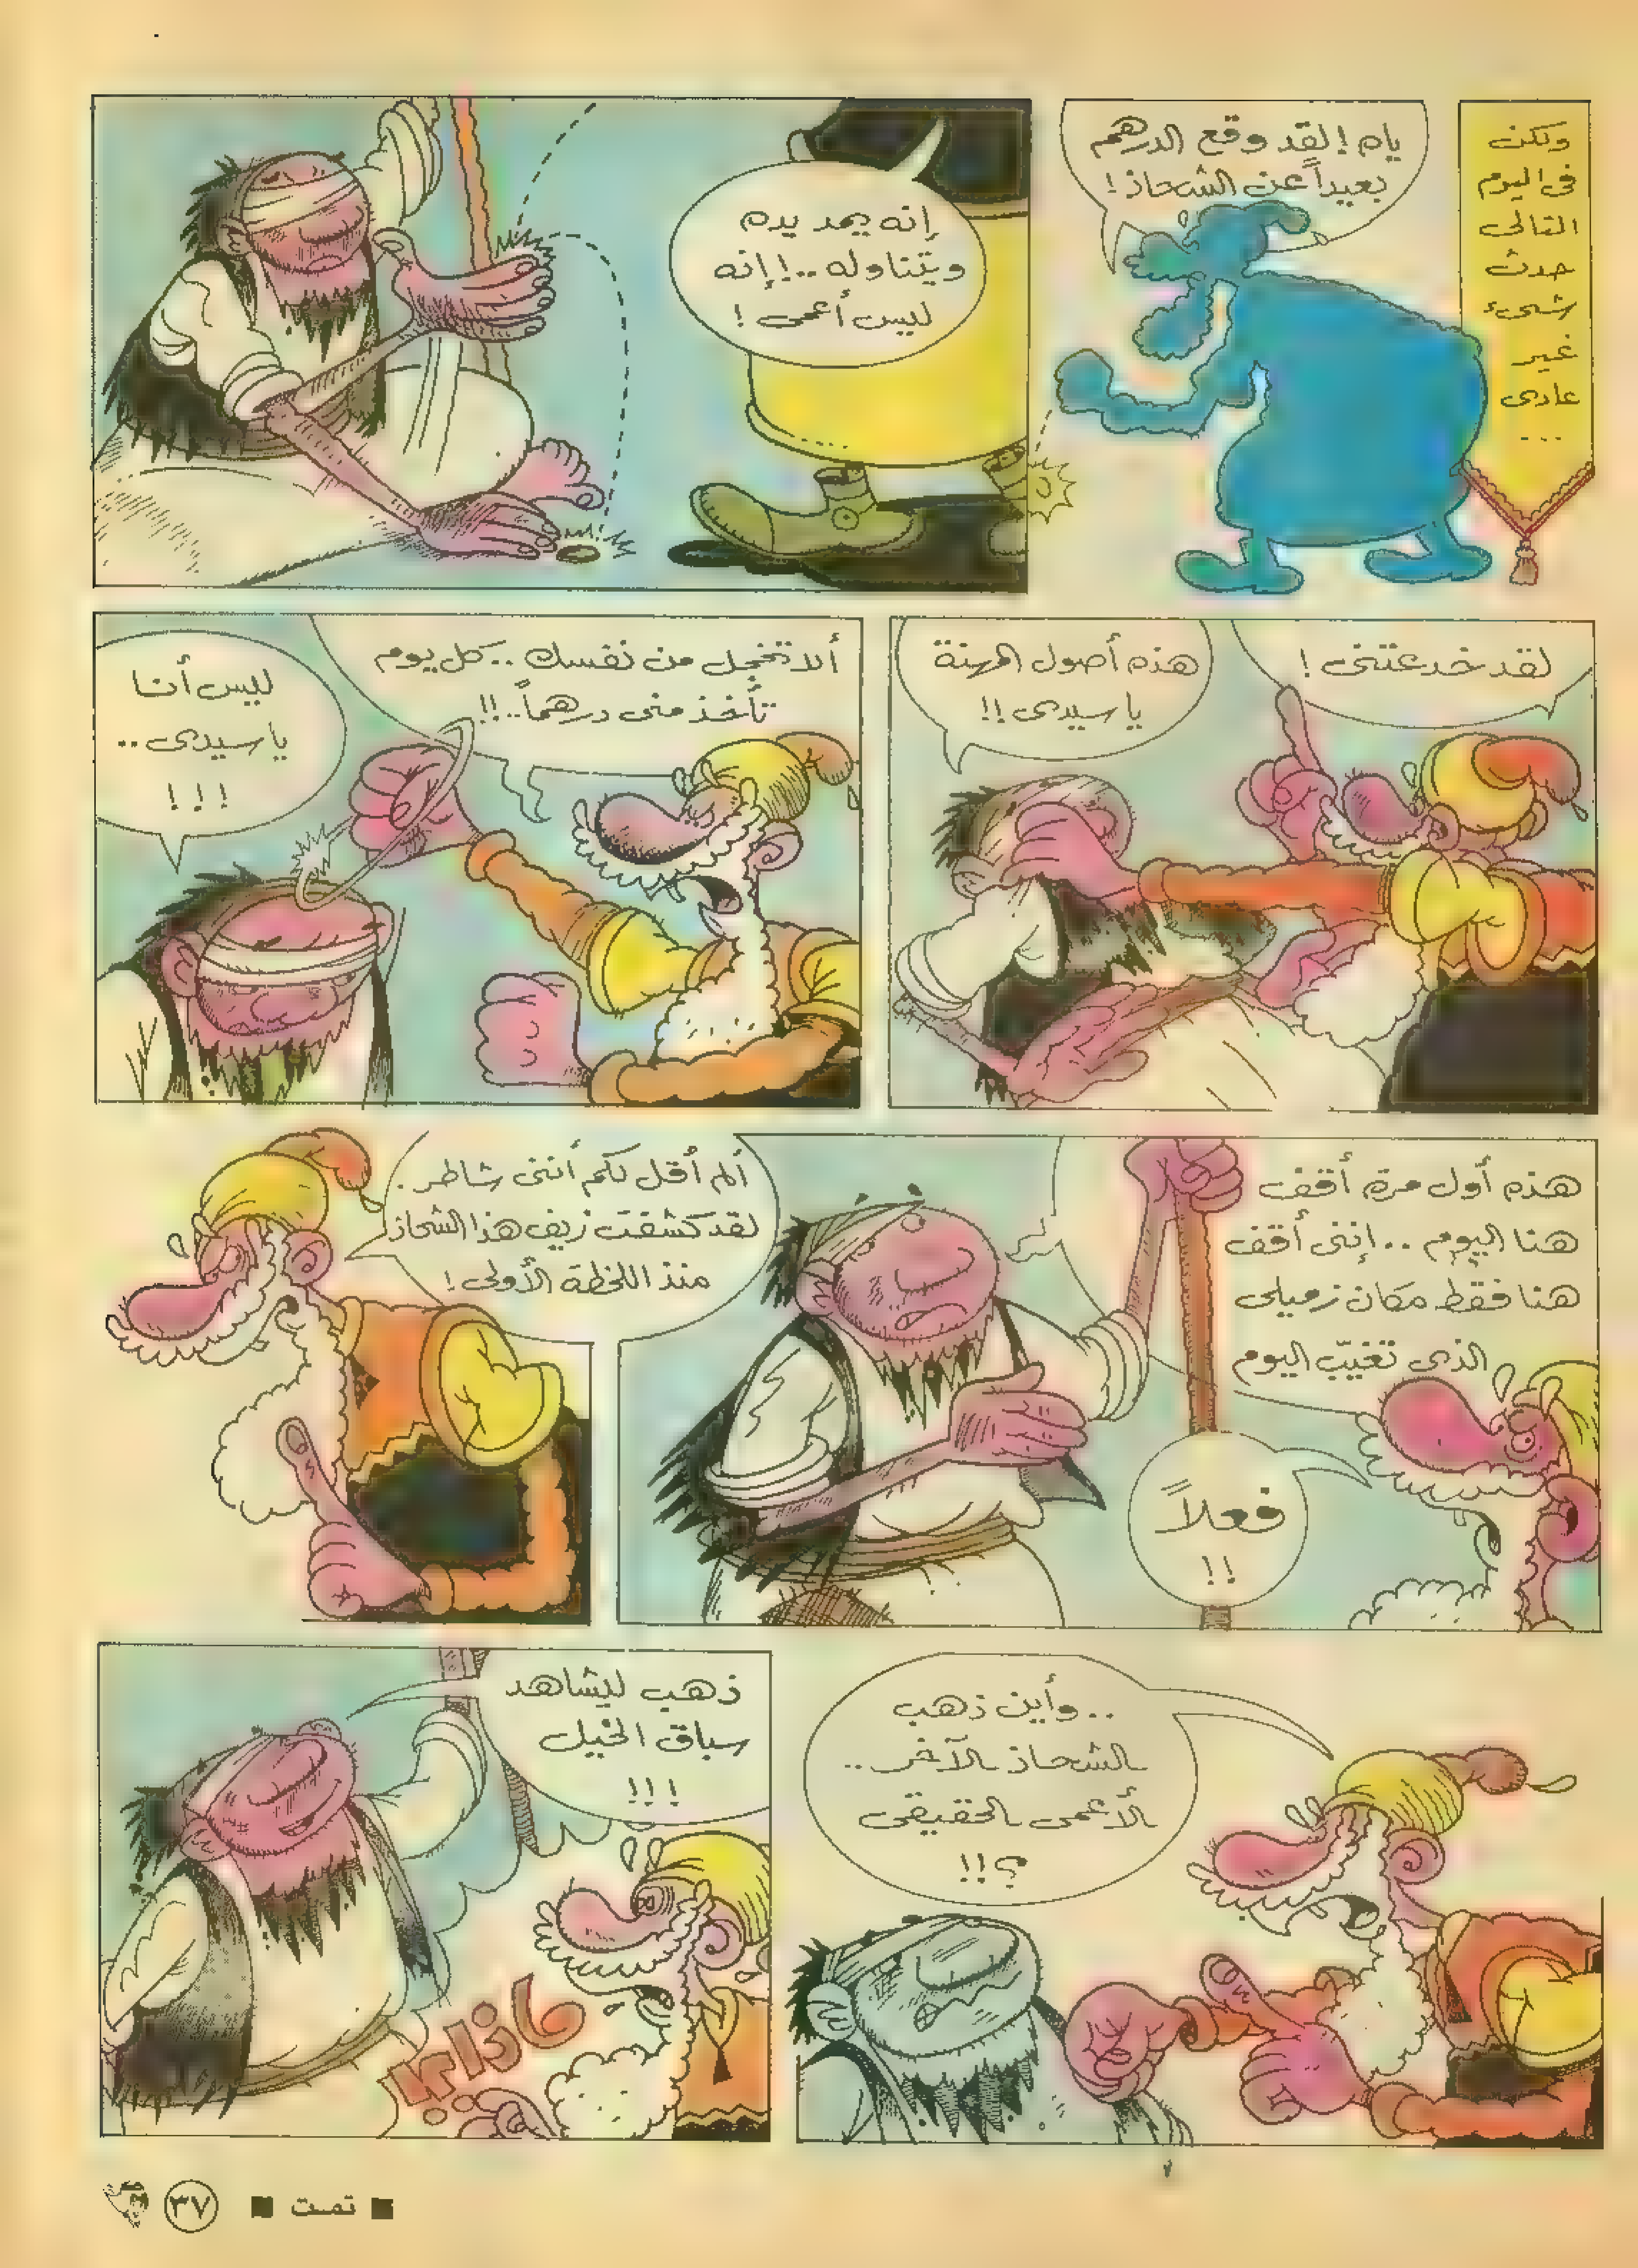 ولكن
فى اليوم
التالى
حدث
شىء
غير
عادى
....
ياه ! لقد وقع الدرهم
بعيداً عن الشحاذ !
إنه يمد يده
ويتناوله ..! إنه
ليس أعمى !
لقد خدعتنى !
هذه أصول المهنة
ياسيدى !!
ألا تخجل من نفسك .. كل يوم
تأخذ منى درهماً ..!!
ليس أنا
ياسيدى ..
!!!
هذه أول مرة أقف
هنا اليوم .. إننى أقف
هنا فقط مكان زميلى
الذى تغيّب اليوم
فعلاً
!!
ألم أقل لكم أننى شاطر .
لقد كشفت زيف هذا الشحاذ
منذ اللحظة الأولى !
.. وأين ذهب
الشحاذ الآخر ..
الأعمى الحقيقى
؟!!
ذهب ليشاهد
سباق الخيل
!!!
ماذا ؟!
■ تمت ■
٣٧